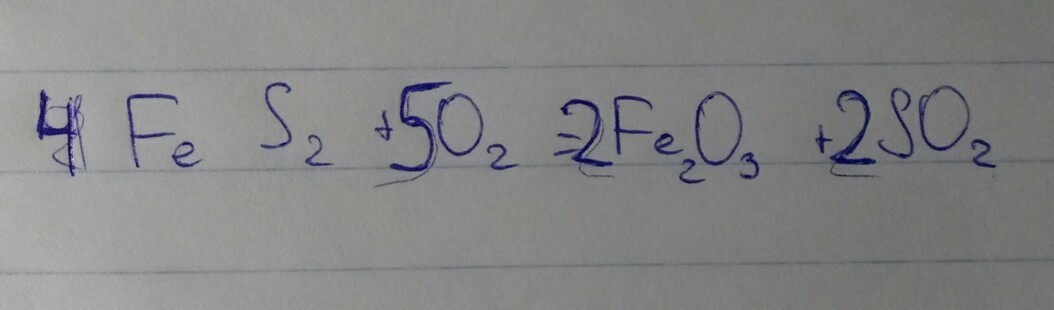 4 Fe S₂ +5O₂ =2Fe₂O₃ +2SO₂